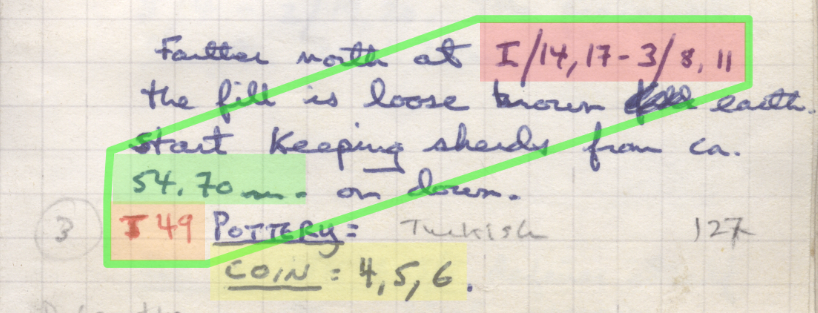 Farther north at I/14, 17-3/8, 11
the fill is loose brown earth.
Start keeping sherds from ca.
54.70 m. on down.
3 I 49 POTTERY: Turkish 127
COIN: 4, 5, 6.